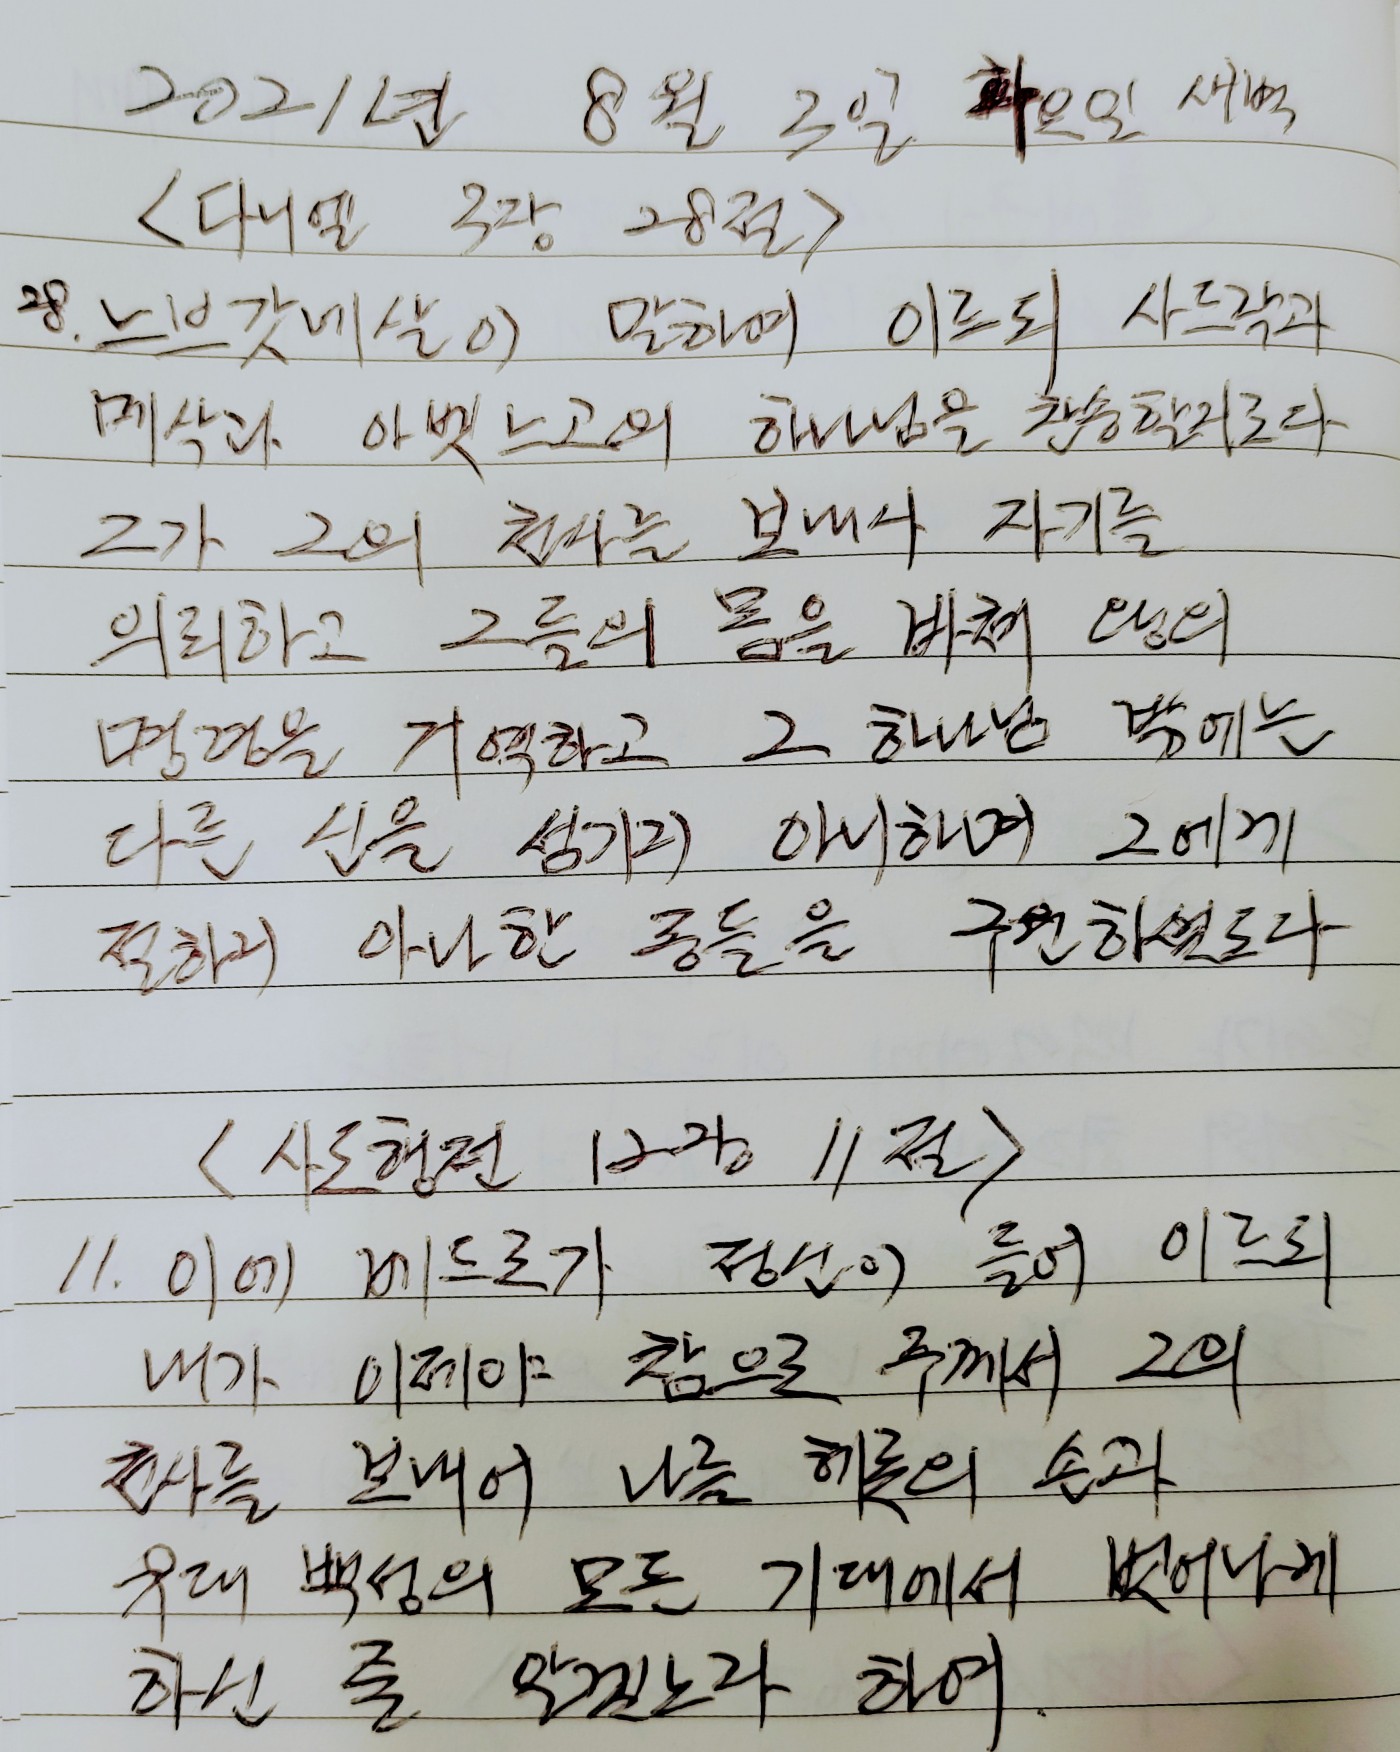 2021년 8월 3일 화요일 새벽
<다니엘 3장 28절>
28. 느브갓네살이 말하여 이르되 사드락과
메삭과 아벳느고의 하나님을 찬송할지로다
그가 그의 천사를 보내사 자기를
의뢰하고 그들의 몸을 바쳐 왕의
명령을 거역하고 그 하나님 밖에는
다른 신을 섬기지 아니하며 그에게
절하지 아니한 종들을 구원하셨도다
<사도행전 12장 11절>
11. 이에 베드로가 정신이 들어 이르되
내가 이제야 참으로 주께서 그의
천사를 보내어 나를 헤롯의 손과
유대 백성의 모든 기대에서 벗어나게
하신 줄 알겠노라 하여.